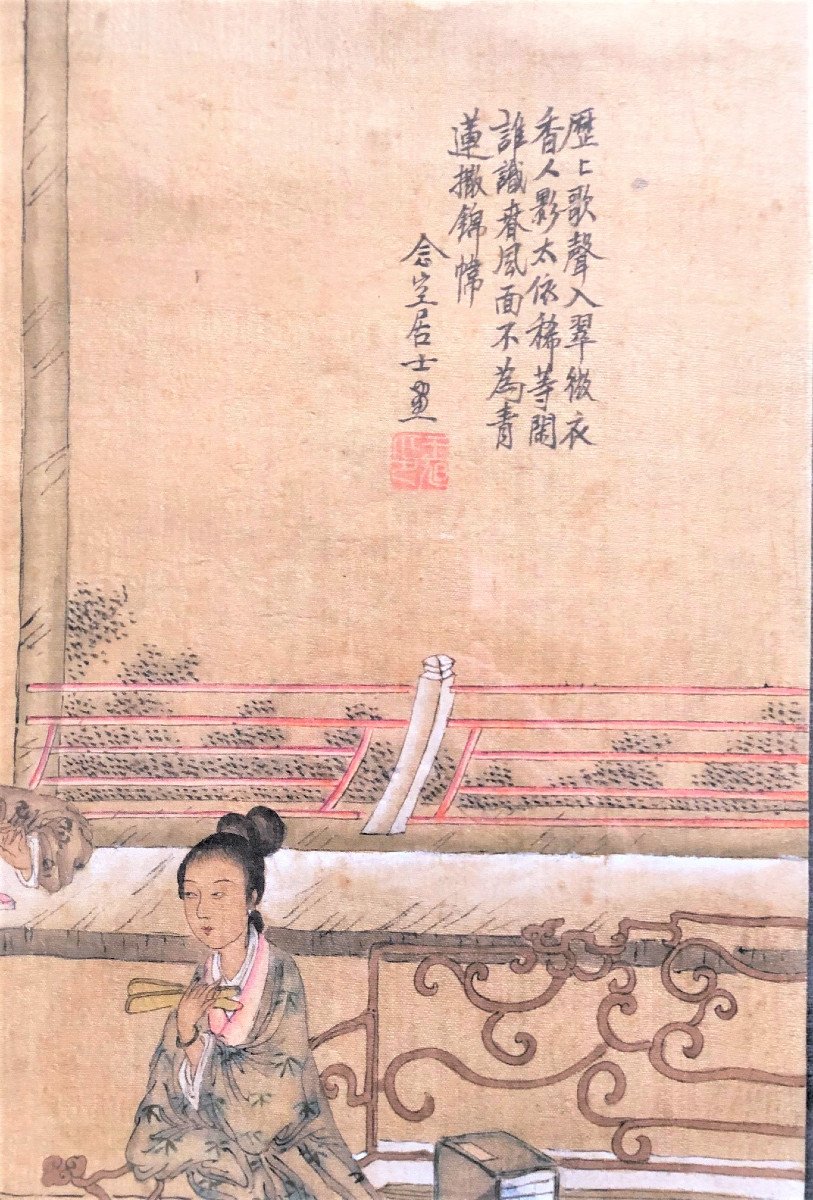 歷〻歌聲入翠微衣
香人影太依稀等閑
誰識春風面不為青
蓮撤錦幃
念空居士畫